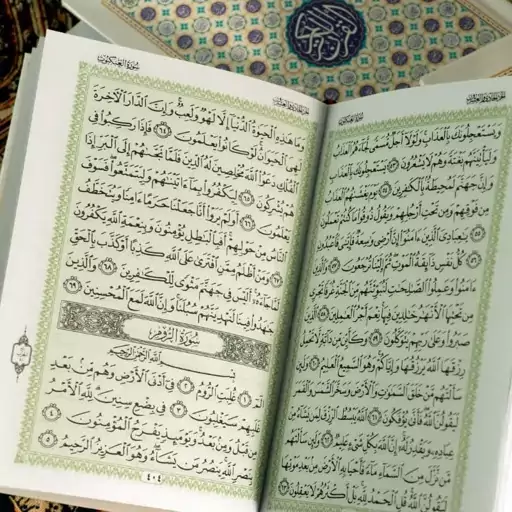 الجزء الحادي والعشرون
سورة العنكبوت
وَيَسْتَعْجِلُونَكَ بِالْعَذَابِ وَلَوْلَا أَجَلٌ مُّسَمًّى لَّجَاءَهُمُ الْعَذَابُ
وَلَيَأْتِيَنَّهُم بَغْتَةً وَهُمْ لَا يَشْعُرُونَ ٥٣ يَسْتَعْجِلُونَكَ بِالْعَذَابِ
وَإِنَّ جَهَنَّمَ لَمُحِيطَةٌ بِالْكَٰفِرِينَ ٥٤ يَوْمَ يَغْشَىٰهُمُ الْعَذَابُ
مِن فَوْقِهِمْ وَمِن تَحْتِ أَرْجُلِهِمْ وَيَقُولُ ذُوقُوا مَا كُنتُمْ تَعْمَلُونَ
٥٥ يَٰعِبَادِيَ الَّذِينَ ءَامَنُوا إِنَّ أَرْضِي وَٰسِعَةٌ فَإِيَّٰيَ فَاعْبُدُونِ
٥٦ كُلُّ نَفْسٍ ذَائِقَةُ الْمَوْتِ ثُمَّ إِلَيْنَا تُرْجَعُونَ ٥٧ وَالَّذِينَ
ءَامَنُوا وَعَمِلُوا الصَّٰلِحَٰتِ لَنُبَوِّئَنَّهُم مِّنَ الْجَنَّةِ غُرَفًا تَجْرِي
مِن تَحْتِهَا الْأَنْهَٰرُ خَٰلِدِينَ فِيهَا نِعْمَ أَجْرُ الْعَٰمِلِينَ ٥٨ الَّذِينَ
صَبَرُوا وَعَلَىٰ رَبِّهِمْ يَتَوَكَّلُونَ ٥٩ وَكَأَيِّن مِّن دَابَّةٍ لَّا تَحْمِلُ
رِزْقَهَا اللَّهُ يَرْزُقُهَا وَإِيَّاكُمْ وَهُوَ السَّمِيعُ الْعَلِيمُ ٦٠ وَلَئِن
سَأَلْتَهُم مَّنْ خَلَقَ السَّمَٰوَٰتِ وَالْأَرْضَ وَسَخَّرَ الشَّمْسَ وَالْقَمَرَ
لَيَقُولُنَّ اللَّهُ فَأَنَّىٰ يُؤْفَكُونَ ٦١ اللَّهُ يَبْسُطُ الرِّزْقَ لِمَن يَشَاءُ مِنْ
عِبَادِهِ وَيَقْدِرُ لَهُ إِنَّ اللَّهَ بِكُلِّ شَيْءٍ عَلِيمٌ ٦٢ وَلَئِن سَأَلْتَهُم
مَّن نَّزَّلَ مِنَ السَّمَاءِ مَاءً فَأَحْيَا بِهِ الْأَرْضَ مِن بَعْدِ مَوْتِهَا
لَيَقُولُنَّ اللَّهُ قُلِ الْحَمْدُ لِلَّهِ بَلْ أَكْثَرُهُمْ لَا يَعْقِلُونَ ٦٣
الجزء الحادي والعشرون
سورة العنكبوت
وَمَا هَٰذِهِ الْحَيَوٰةُ الدُّنْيَا إِلَّا لَهْوٌ وَلَعِبٌ وَإِنَّ الدَّارَ الْآخِرَةَ
لَهِيَ الْحَيَوَانُ لَوْ كَانُوا يَعْلَمُونَ ٦٤ فَإِذَا رَكِبُوا فِي
الْفُلْكِ دَعَوُا اللَّهَ مُخْلِصِينَ لَهُ الدِّينَ فَلَمَّا نَجَّىٰهُمْ إِلَى الْبَرِّ إِذَا
هُمْ يُشْرِكُونَ ٦٥ لِيَكْفُرُوا بِمَا ءَاتَيْنَٰهُمْ وَلِيَتَمَتَّعُوا فَسَوْفَ
يَعْلَمُونَ ٦٦ أَوَلَمْ يَرَوْا أَنَّا جَعَلْنَا حَرَمًا ءَامِنًا وَيُتَخَطَّفُ
النَّاسُ مِنْ حَوْلِهِمْ أَفَبِالْبَٰطِلِ يُؤْمِنُونَ وَبِنِعْمَةِ اللَّهِ يَكْفُرُونَ
٦٧ وَمَنْ أَظْلَمُ مِمَّنِ افْتَرَىٰ عَلَى اللَّهِ كَذِبًا أَوْ كَذَّبَ بِالْحَقِّ
لَمَّا جَاءَهُ أَلَيْسَ فِي جَهَنَّمَ مَثْوًى لِّلْكَٰفِرِينَ ٦٨ وَالَّذِينَ
جَٰهَدُوا فِينَا لَنَهْدِيَنَّهُمْ سُبُلَنَا وَإِنَّ اللَّهَ لَمَعَ الْمُحْسِنِينَ ٦٩
سُورَةُ الرُّومِ
بِسْمِ اللَّهِ الرَّحْمَٰنِ الرَّحِيمِ
الٓمٓ ١ غُلِبَتِ الرُّومُ ٢ فِي أَدْنَى الْأَرْضِ وَهُم مِّن بَعْدِ
غَلَبِهِمْ سَيَغْلِبُونَ ٣ فِي بِضْعِ سِنِينَ لِلَّهِ الْأَمْرُ
مِن قَبْلُ وَمِن بَعْدُ وَيَوْمَئِذٍ يَفْرَحُ الْمُؤْمِنُونَ ٤
بِنَصْرِ اللَّهِ يَنصُرُ مَن يَشَاءُ وَهُوَ الْعَزِيزُ الرَّحِيمُ ٥
٤٠٤